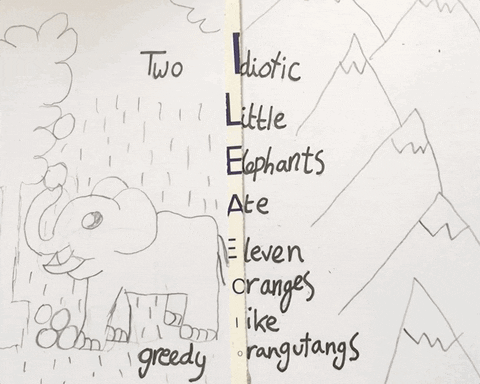 Two Idiotic
Little
Elephants
Ate
Eleven
oranges
like
greedy orangutangs